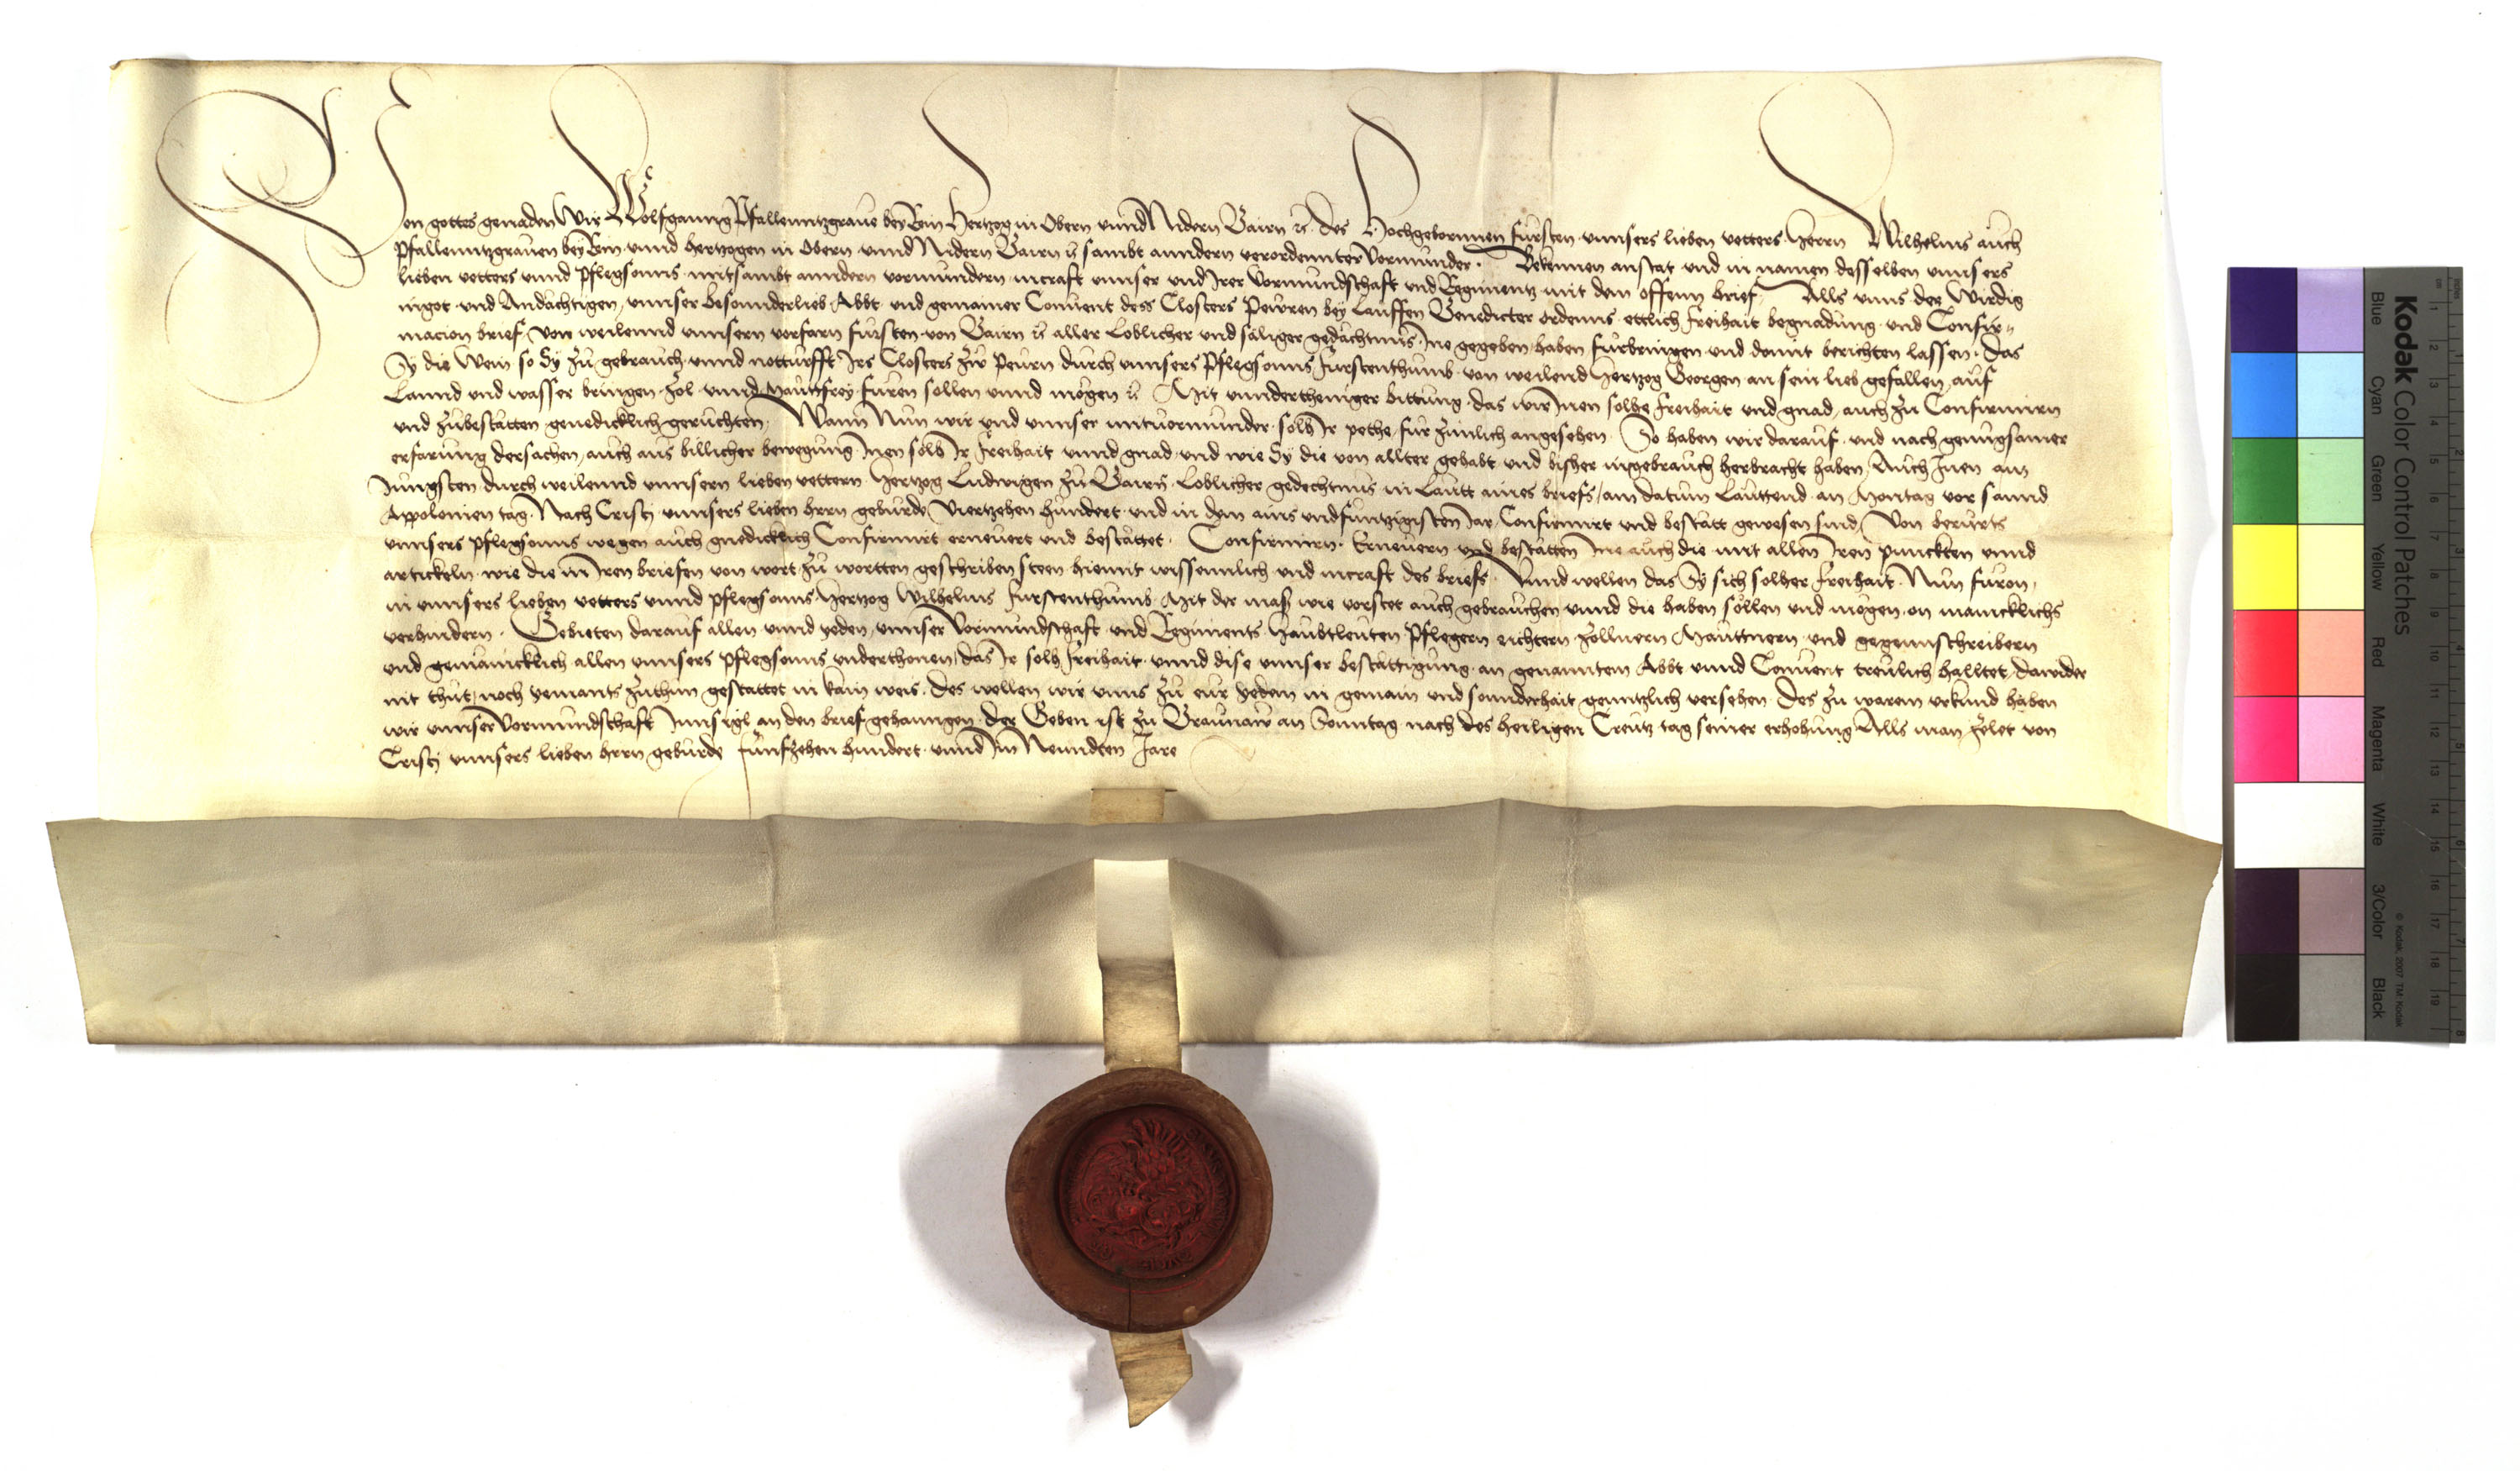 Von gottes genaden Wir Wolfganng Pfallenntzgraue bey Rein Hertzog in Obern vnnd Nidern Bairn ꝛc des Hochgebornnen fursten vnnsers lieben vetters Herrn Wilhelms auch
Pfallenntzgrauen bey Rein vnnd hertzogen in Obern vnnd Nidern Bairn ꝛc sambt anndern verordennter Vormunder. Bekennen anstat vnd in namen desselben vnnsers
lieben vetters vnnd pflegsonns mitsambt anndern vormundern incraft vnnser vnd Irer Vormundschaft vnd Regimentz mit dem offenn brief, Alls vnns der Wirdig
ingot vnd Andachtigen, vnnser besonnderlieb Abbt vnd gemainer Conuent dess Closters Pewren bey Lauffen Benedicter ordenns ettlich freihait begnadung vnd Confir=
macion brief, von weilennd vnnsern vorfarn fursten von Bairn ꝛc aller Loblicher vnd säliger gedächtnus Ine gegeben haben furbringen vnd domit berichten lassen. Das
Sy die Wein so Sy zu gebrauch vnnd notturfft Irs Closters zw Peurn durch vnnsers Pflegsonns Furstenthumb von weilend Hertzog Georgen an sein lieb gefallen, auf
Lannd vnd wasser bringen zol vnnd Mauttfrey furen sollen vnnd mögen ꝛc Mit vnndertheniger bittung das wir Inen solhe freihait vnd gnad, auch zu Confirmirn
vnd zubestatten genedicklich geruchten, Wann Nun wir vnd vnnser mituormunder solh Ir pethe, fur zimlich angesehen. So haben wir darauf vnd nach genugsamer
erfarung dersachen, auch aus billicher bewegung Inen solh Ir freihait vnnd gnad vnd wie Sy die von allter gehabt vnd bisher ingebrauch herbracht haben, Auch Inen am
Jungsten durch weilennd vnnsern lieben vettern Hertzog Ludwigen zu Bairn Loblicher gedechtnus in Lautt aines briefs, am datum Lauttend an Montag vor sannd
Appolonien tag Nach Cristj vnnsers lieben hrrn geburde Viertzehen hundert vnd in dem ains vndfuntzigisten Iar Confirmirt vnd bestätt gewesen sind, Von berurts
vnnsers pflegsonns wegen auch gnedicklich Confirmirt erneuert vnd bestättet. Confirmirn. Erneuern vnd bestätten Ine auch die mit allen Iren punckten vnnd
artickeln wie die in Iren briefen von wort zu wortten geschriben steen hiemit wissennlich vnd incraft des briefs. Vnnd wellen das Sy sich solher freihait Nun furon,
in vnnsers lieben vetters vnnd pflegsonns Hertzog Wilhelms Furstenthumb Mit der mass wie vorstet auch gebrauchen vnnd die haben söllen vnd mögen on manicklichs
verhindern. Gebieten darauf allen vnnd yeden, vnnser Vormundschaft vnd Regiments Haubtleuten Pflegern richtern Zollnern Mauttnern vnd gegennschreibern
vnd gemainicklich allen vnnsers pflegsonns vnderthonen das Ir solh freihait vnnd dise vnnser bestättigung an genanntem Abbt vnnd Conuent treulich halltet, dawider
nit thut, noch yemants zuthun gestattet in kain weis. des wellen wir vnns zu eur yedem in gemain vnd sonnderhait genntzlich versehen. Des zu warem vrkund haben
wir vnnser Vormundschaft Innsigl an den brief gehanngen. der Geben ist zu Braunaw an Sonntag nach des heiligen Creutz tag seiner erhohung Alls man zelet von
Cristj vnnsers lieben hrrn geburde funfzehen hundert vnnd Im Neundten Jare
Kodak Color Control Patches
Blue Cyan Green Yellow Red Magenta White 3/Color Black
© Kodak, 2007 TM: Kodak